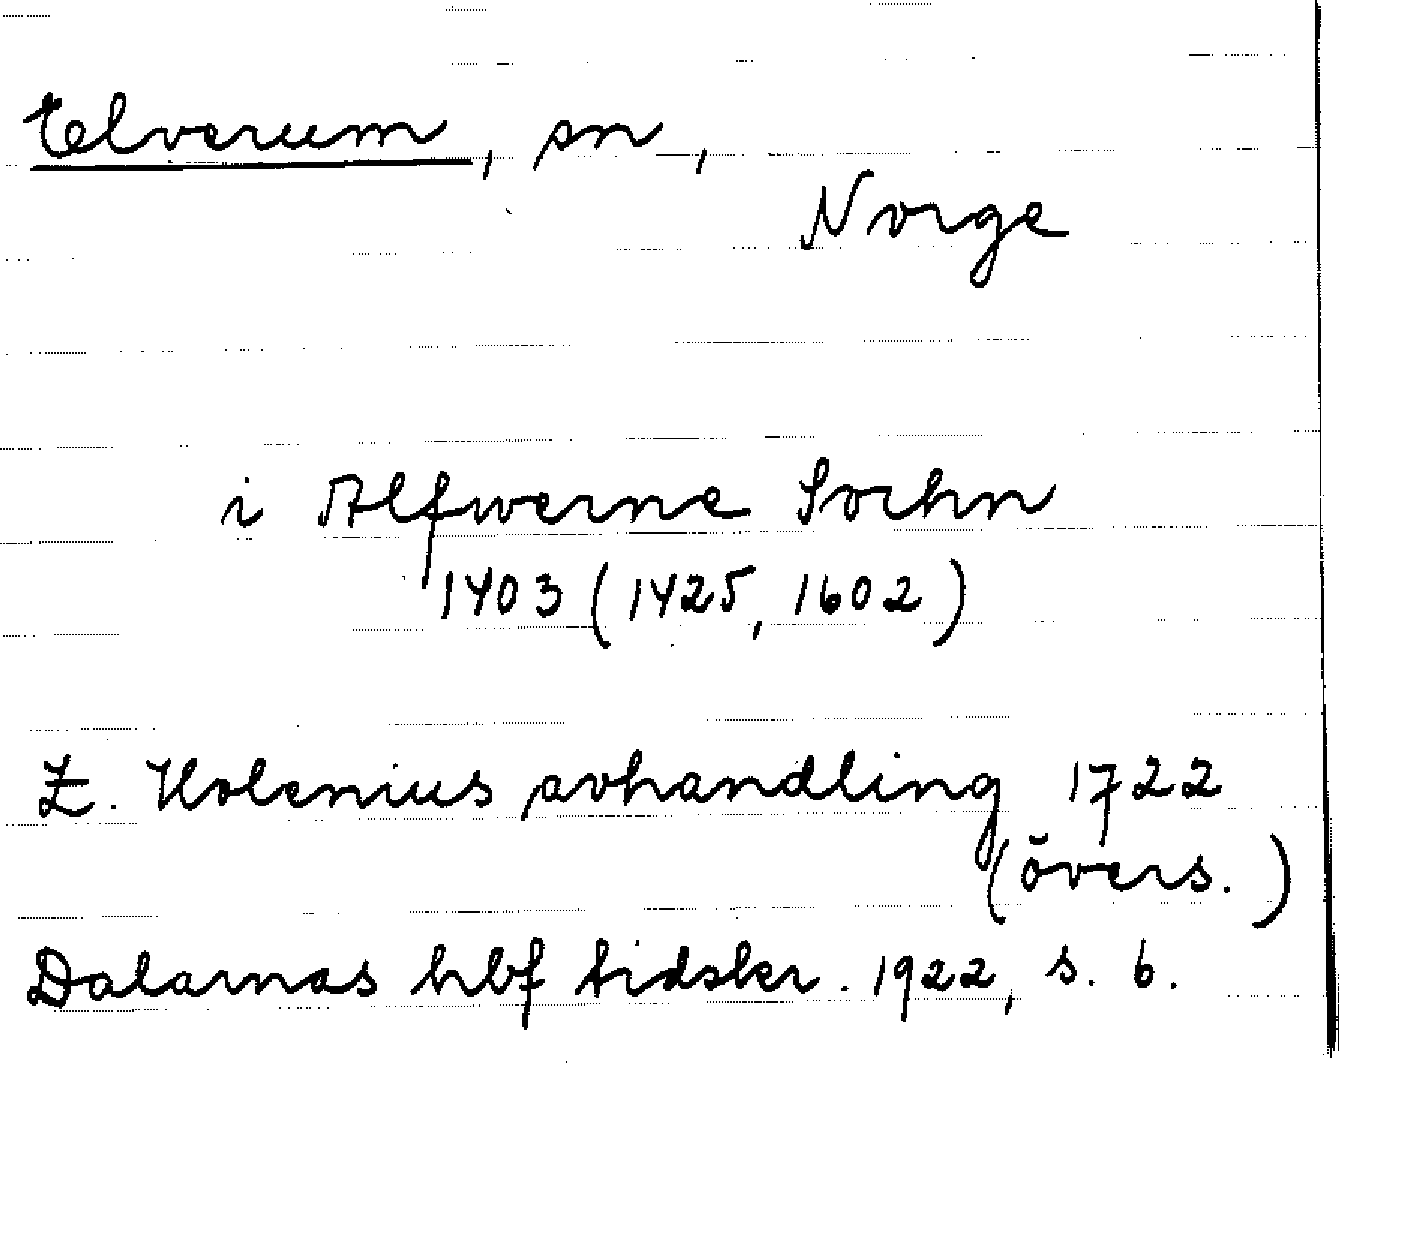 Elverum, sn,
Norge
i Alfwerne Sochn
1403 (1425, 1602)
Z. Holenius avhandling 1722
(övers.)
Dalarnas hbf tidskr. 1922, s. 6.